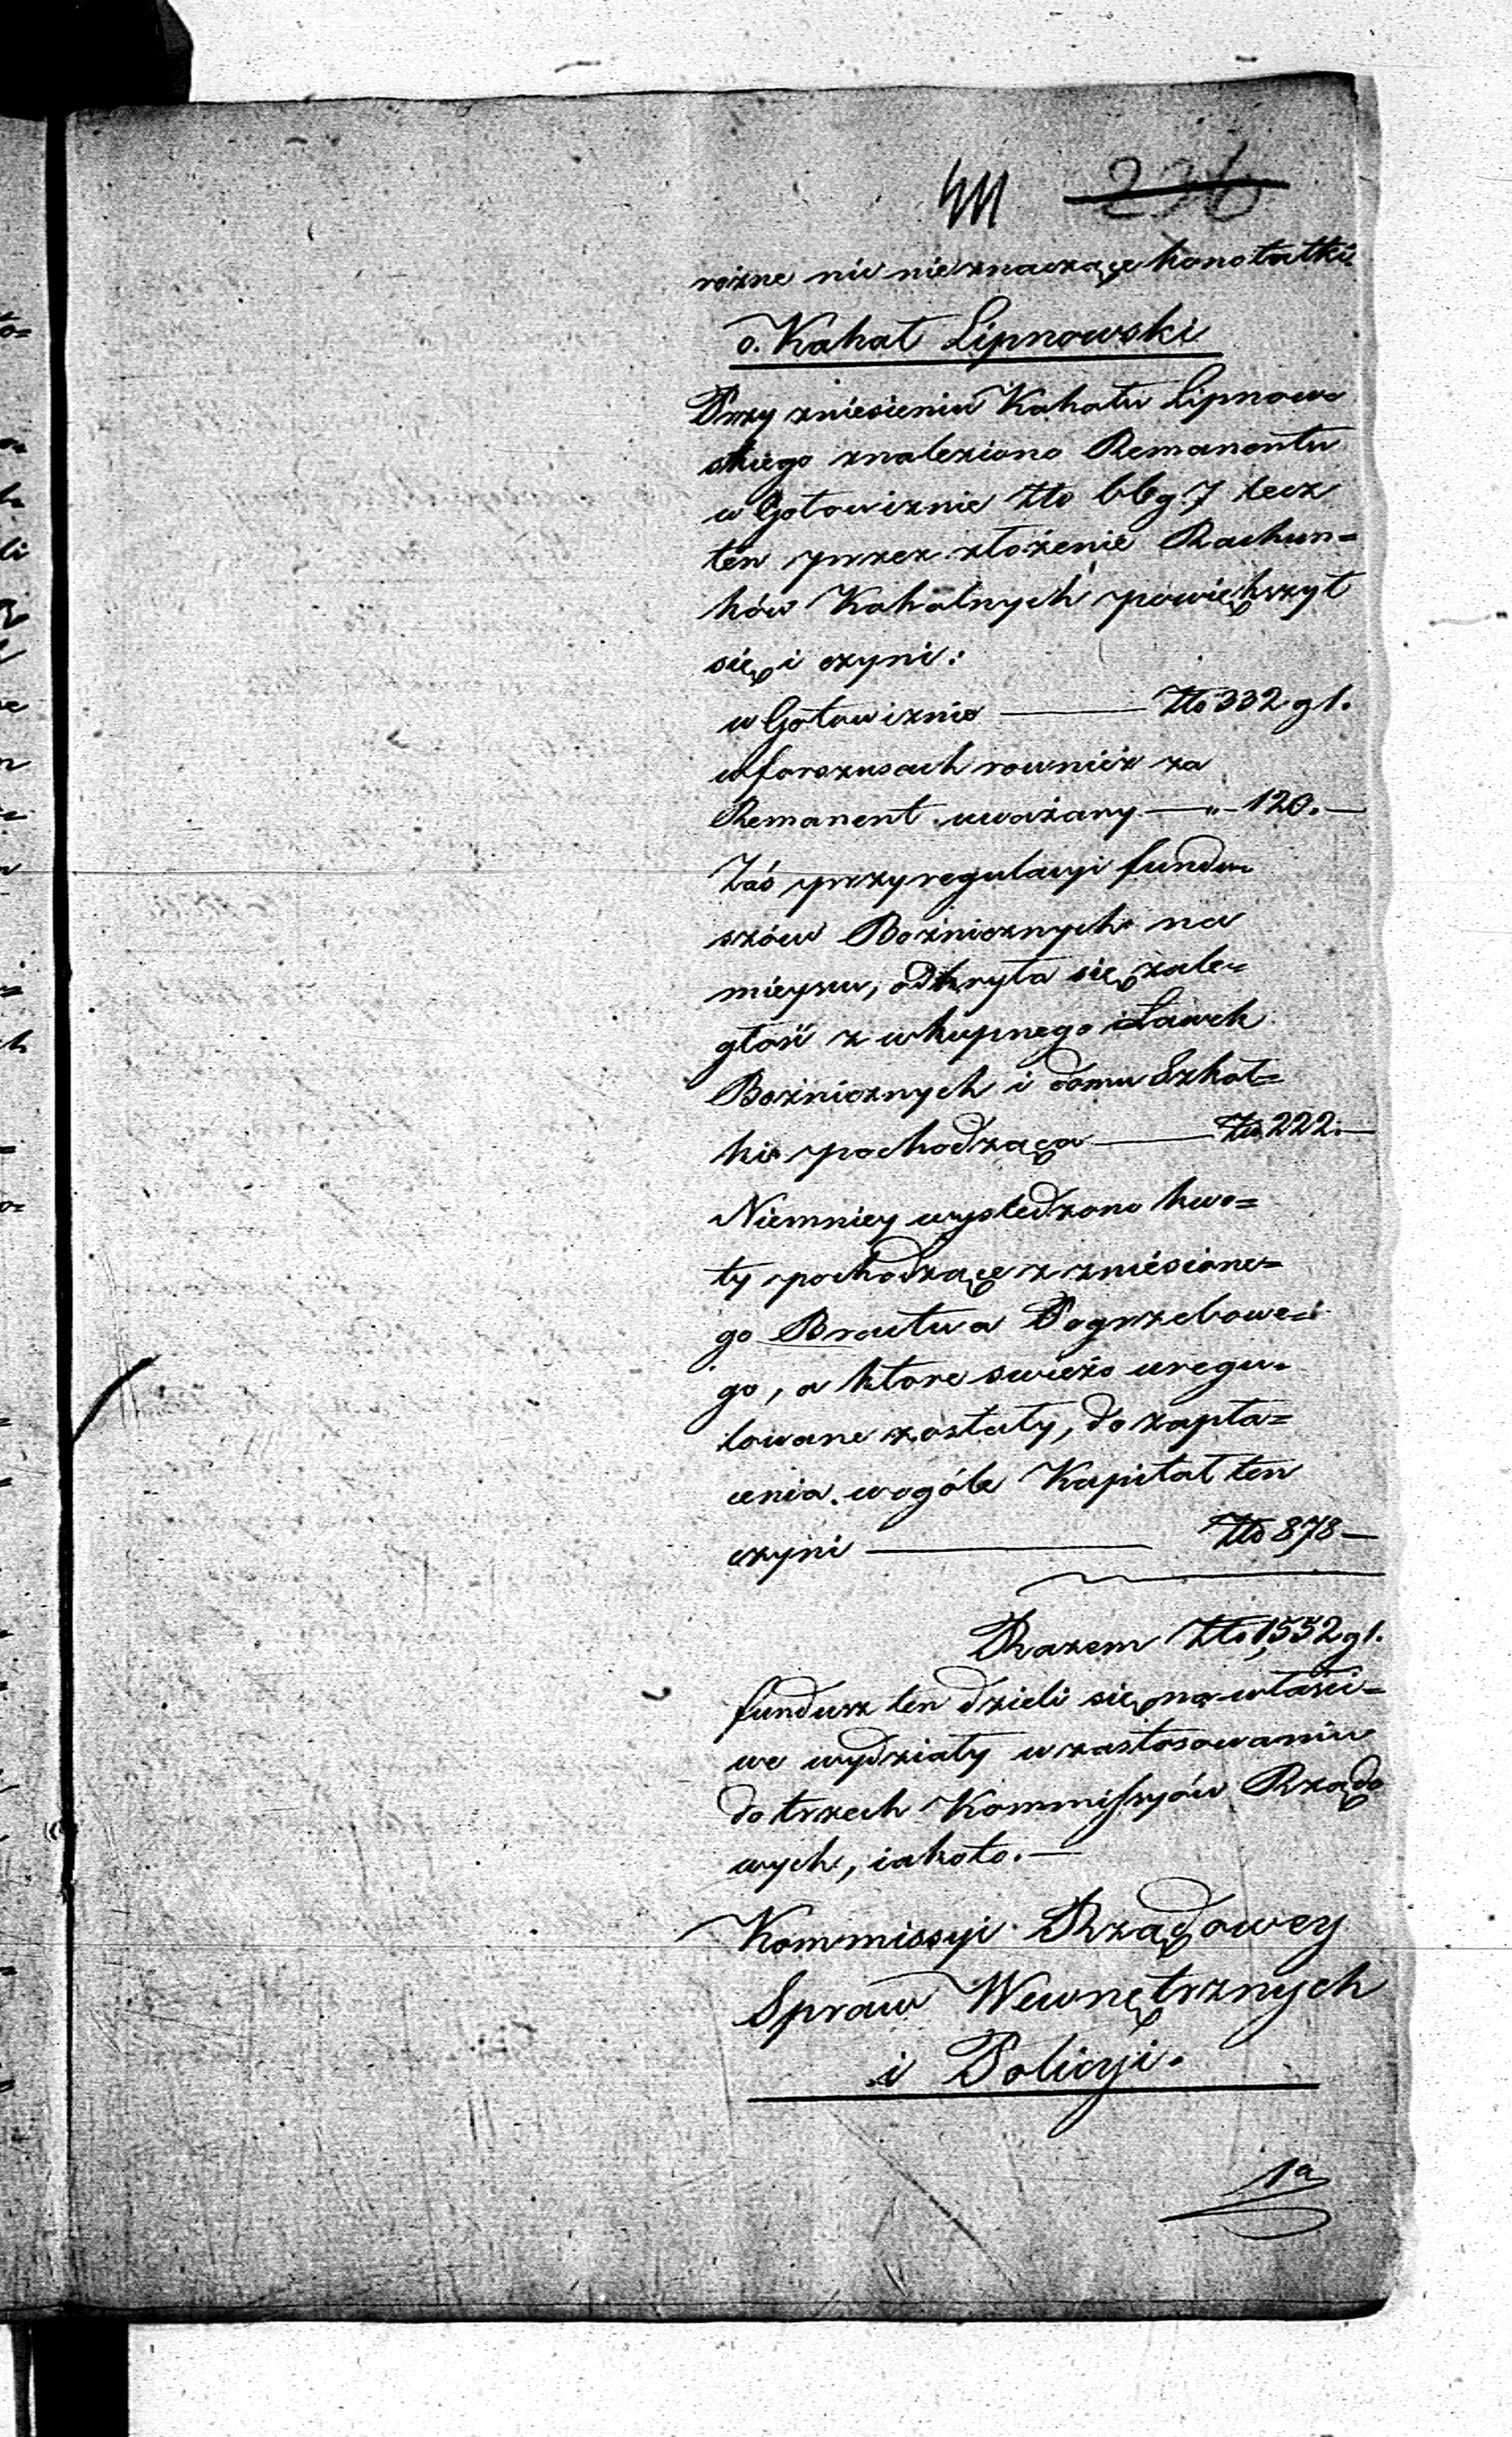 411 236
rożne nic nieznaczące konotatki
o. Kahał Lipnowski
Przy zniesieniu Kahału Lipnow=
skiego znaleziono Remanentu
w Gotowiznie Złło 66 g 7 lecz
ten przez złożenie Rachun=
ków Kahalnych powiększył
się i czyni:
w Gotowiznie — Złło 332 g 1.
w forszusach rownież za
Remanent uważany — „ — 120. —
Zaś przy regulacyi fundu=
szów Bożnicznych na
mieyscu, odkryta się zale=
głość z wkupnego i Ławek
Bożnicznych i domu Szkol=
ki pochodząca — Złło 222. —
Niemniey wyśledzono kwo=
ty pochodzące z zniesione=
go Bractwa Pogrzebowe=
go, a ktore swieżo uregu=
lowane zostały, do zapła=
cenia. wogóle Kapitał ten
czyni — Złło 878 —
Razem Złło 1,552 g 1.
fundusz ten dzieli się na właści=
we wydziały w zastosowaniu
do trzech Kommissyów Rządo
wych, iakoto. —
Kommissyi Rządowey
Spraw Wewnętrznych
i Policyi.
1a